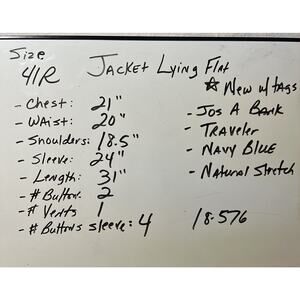 Size
41R
Jacket Lying Flat
☆ New w/ tags
- Chest: 21"
- Waist: 20"
- Shoulders: 18.5"
- Sleeve: 24"
- Length: 31"
- # Button: 2
- # Vents 1
- # Buttons sleeve: 4
- Jos A Bank
- Traveler
- Navy Blue
- Natural Stretch
18-576